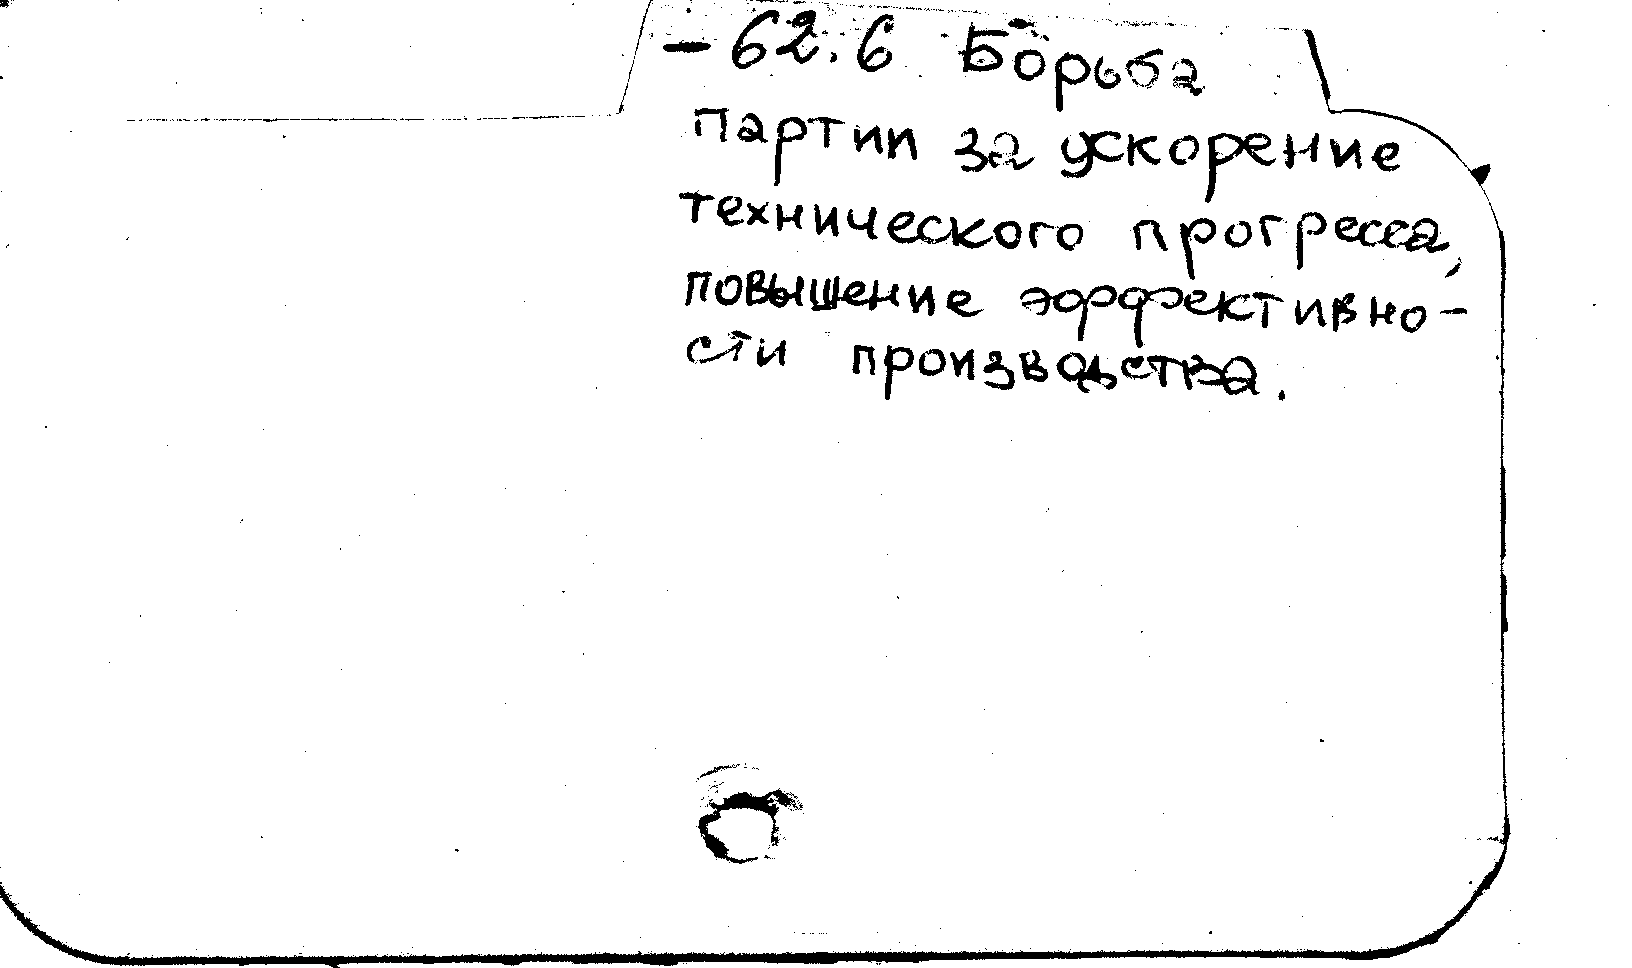 - 62.6 Борьба
партии за ускорение
технического прогресса,
повышение эффективно-
сти производства.